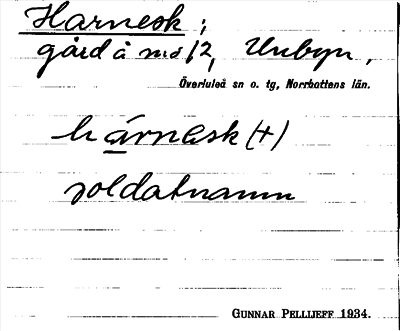 Harnesk;
gård å n:o 12, Unbyn,
Överluleå sn o. tg, Norrbottens län.
hárnesk (+)
soldatnamn
GUNNAR PELLIJEFF 1934.